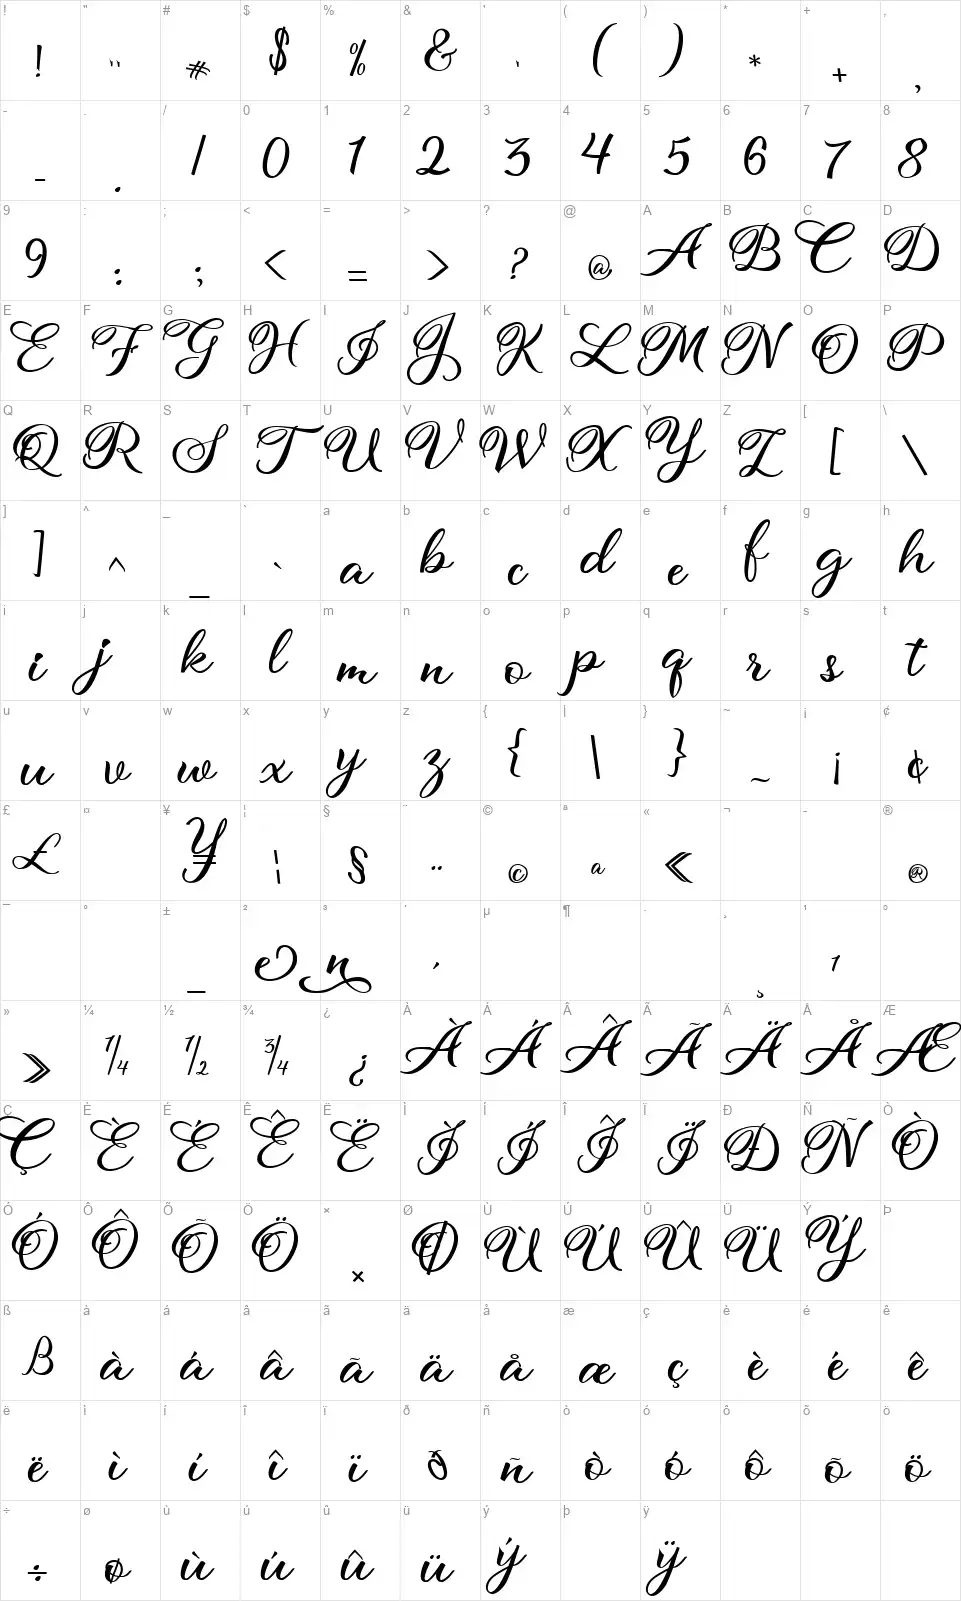 ! " # $ % & ' ( ) * + ,
! " # $ % & ' ( ) * + ,
- . / 0 1 2 3 4 5 6 7 8
- . / 0 1 2 3 4 5 6 7 8
9 : ; < = > ? @ A B C D
9 : ; < = > ? @ A B C D
E F G H I J K L M N O P
E F G H I J K L M N O P
Q R S T U V W X Y Z [ \
Q R S T U V W X Y Z [ \
] ^ _ ` a b c d e f g h
] ^ _ ` a b c d e f g h
i j k l m n o p q r s t
i j k l m n o p q r s t
u v w x y z { | } ~ ¡ ¢
u v w x y z { \ } ~ ¡ ¢
£ ¤ ¥ ¦ § ¨ © ª « ¬ - ®
£ ¥ ¦ § ¨ © ª « ®
¯ ° ± ² ³ ´ µ ¶ · ¸ ¹ º
_ e n ´ ¸ 1
» ¼ ½ ¾ ¿ À Á Â Ã Ä Å Æ
» ¼ ½ ¾ ¿ À Á Â Ã Ä Å Æ
Ç È É Ê Ë Ì Í Î Ï Ð Ñ Ò
Ç È É Ê Ë Ì Í Î Ï Ð Ñ Ò
Ó Ô Õ Ö × Ø Ù Ú Û Ü Ý Þ
Ó Ô Õ Ö × Ø Ù Ú Û Ü Ý
ß à á â ã ä å æ ç è é ê
ß à á â ã ä å æ ç è é ê
ë ì í î ï ð ñ ò ó ô õ ö
ë ì í î ï ð ñ ò ó ô õ ö
÷ ø ù ú û ü ý þ ÿ
÷ ø ù ú û ü ý ÿ